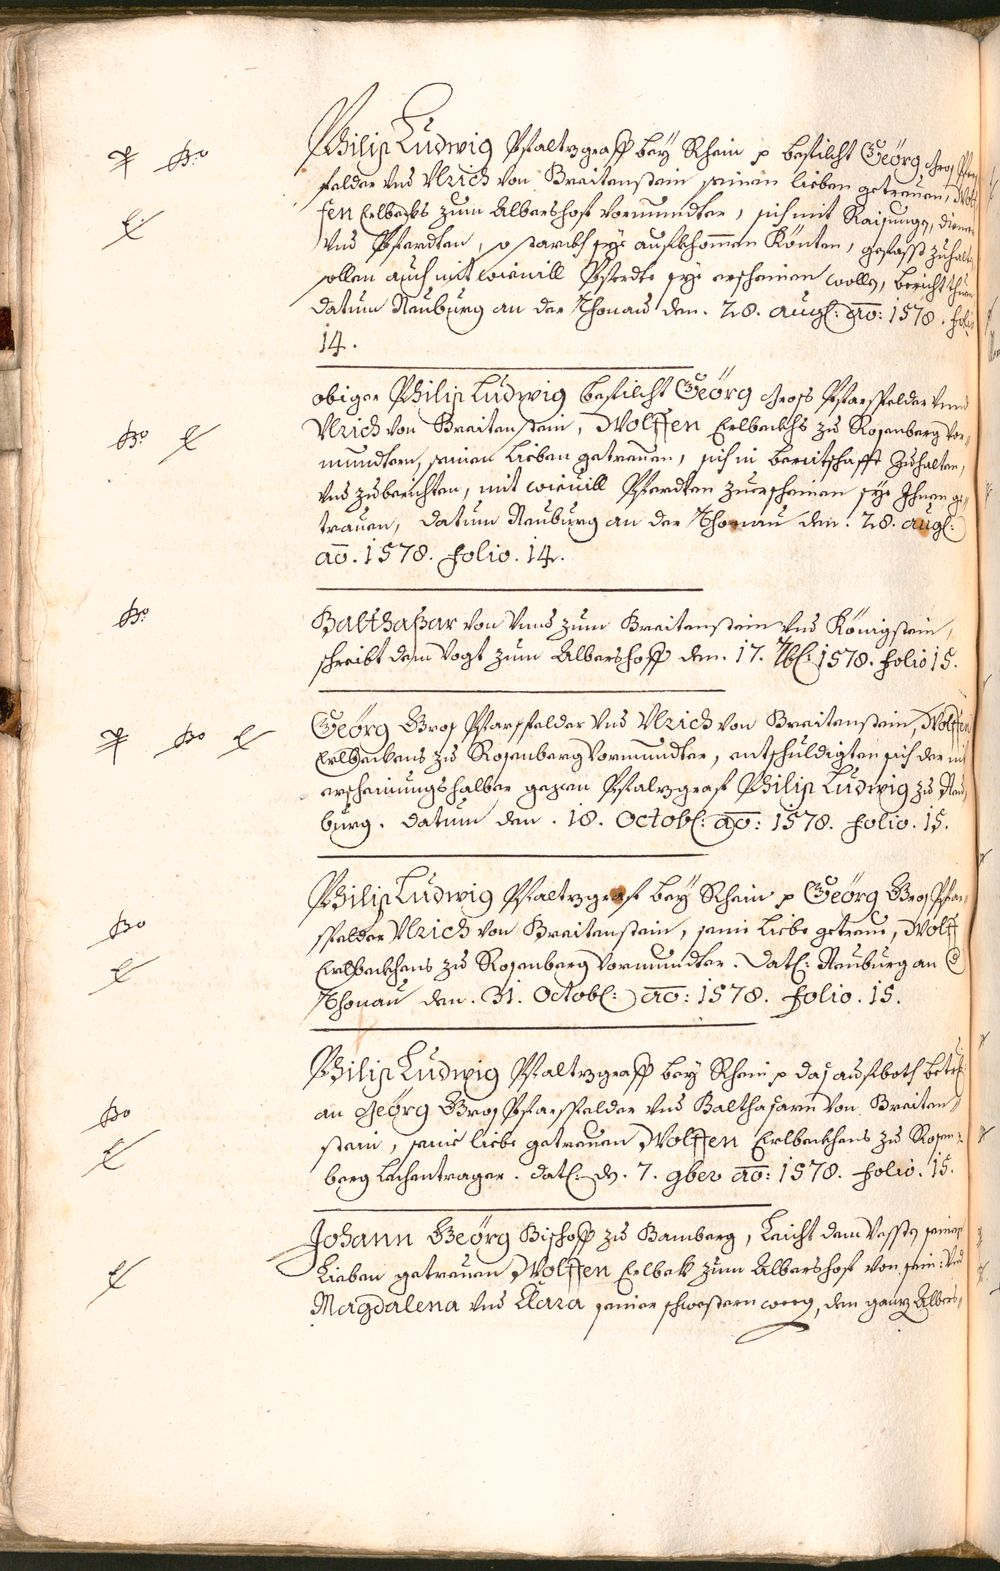 Philip Ludwig Pfaltzgraff bey Rhein p befilcht Geörg Gros Pfars
felder vnd Vlrich von Breitenstein seinen lieben getreuen, Wolf
fen Erlbecks zum Albershoff Vormundter, sich mit Raisungs, dienern
vnd Pferdten, so starckh sye aufkhommen Könten, gefasst zuhalten
sollen auch mit wieuill Pferdte sye erscheinen wolle, bericht thuen
datum Neuburg an der Thonau den. 28. augl: ao: 1578. folio
14.
obiger Philip Ludwig befilcht Geörg Gross Pfarsfelder vnnd
Vlrich von Breitenstein, Wolffen Erlbeckhs zu Rosenberg Vor-
mundtern, seinen lieben getreuen, sich in bereitschafft zuhalten,
vnd zuberichten, mit wieuill Pferdten zuerscheinen sye Ihnen ge-
trauen, datum Neuburg an der Thonau den. 28. augl:
ao. 1578. folio. 14.
Balthaßar von vnnd zum Breitenstein vnd Königstein,
schreibt dem Vogt zum Albershoff den. 17. 7bl: 1578. folio 15.
Geörg Gros Pfarsfelder vnd Vlrich von Breitenstein, Wolffen
Erlbeckens zu Rosenberg Vormundter, entschuldigten sich der nit
erscheinungshalber gegen Pfaltzgraf Philip Ludwig zu Neu-
burg. datum den. 18. Octobl: ao: 1578. folio. 15.
Philip Ludwig Pfaltzgraf bey Rhein p Geörg Gros Pfar-
sfelder Vlrich von Breitenstein, seine liebe getreue, Wolff
Erlbeckhens zu Rosenberg Vormundter. Datl: Neuburg an d
Thonau den. 31. Octobl: ao: 1578. folio. 15.
Philip Ludwig Pfaltzgraff bey Rhein p das aufboth betrl:
an Geörg Gros Pfarsfelder vnd Balthasarn von Breiten-
stein, seine liebe getreuen Wolffen Erlbeckhens zu Rosen-
berg Lehentrager. datl: d. 7. 9ber ao: 1578. folio. 15.
Johann Geörg Bischoff zu Bamberg, Leicht dem Vesten seinen
Lieben getreuen Wolffen Erlbek zum Albershoff von sein: vnd
Magdalena vnd Clara seiner schwestern weeg, den gantz Albers-